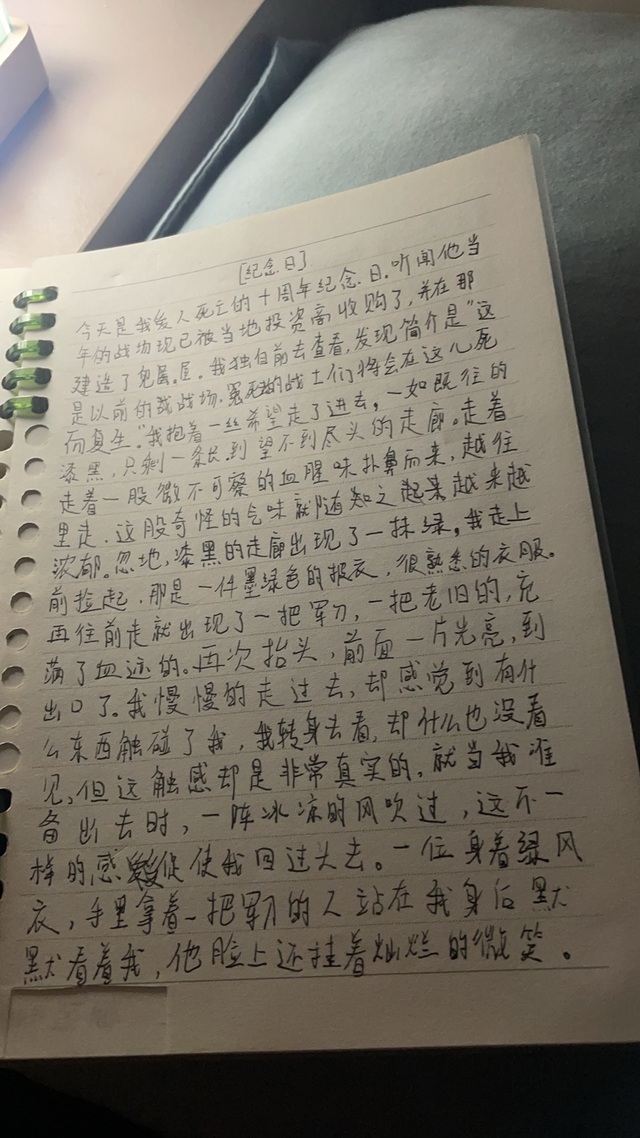 [纪念日]
今天是我爱人死亡的十周年纪念日.听闻他当
年的战场现已被当地投资商收购了,并在那
建造了鬼屋。我独自前去查看,发现简介是"这
是以前的战场.冤死的战士们将会在这儿死
而复生."我抱着一丝希望走了进去,一如既往的
漆黑,只剩一条长到望不到尽头的走廊。走着
走着一股微不可察的血腥味扑鼻而来,越往
里走,这股奇怪的气味就随知之起来越来越
浓郁。忽地,漆黑的走廊出现了一抹绿。我走上
前捡起,那是一件墨绿色的披衣,很熟悉的衣服。
再往前走就出现了一把军刀,一把老旧的,充
满了血迹的。再次抬头,前面一片光亮,到
出口了。我慢慢的走过去,却感觉到有什
么东西触碰了我,我转身去看,却什么也没看
见,但这触感却是非常真实的,就当我准
备出去时,一阵冰凉的风吹过,这不一
样的感促使我回过头去。一位身着绿风
衣,手里拿着一把军刀的人站在我身后默
默看着我,他脸上还挂着灿烂的微笑。